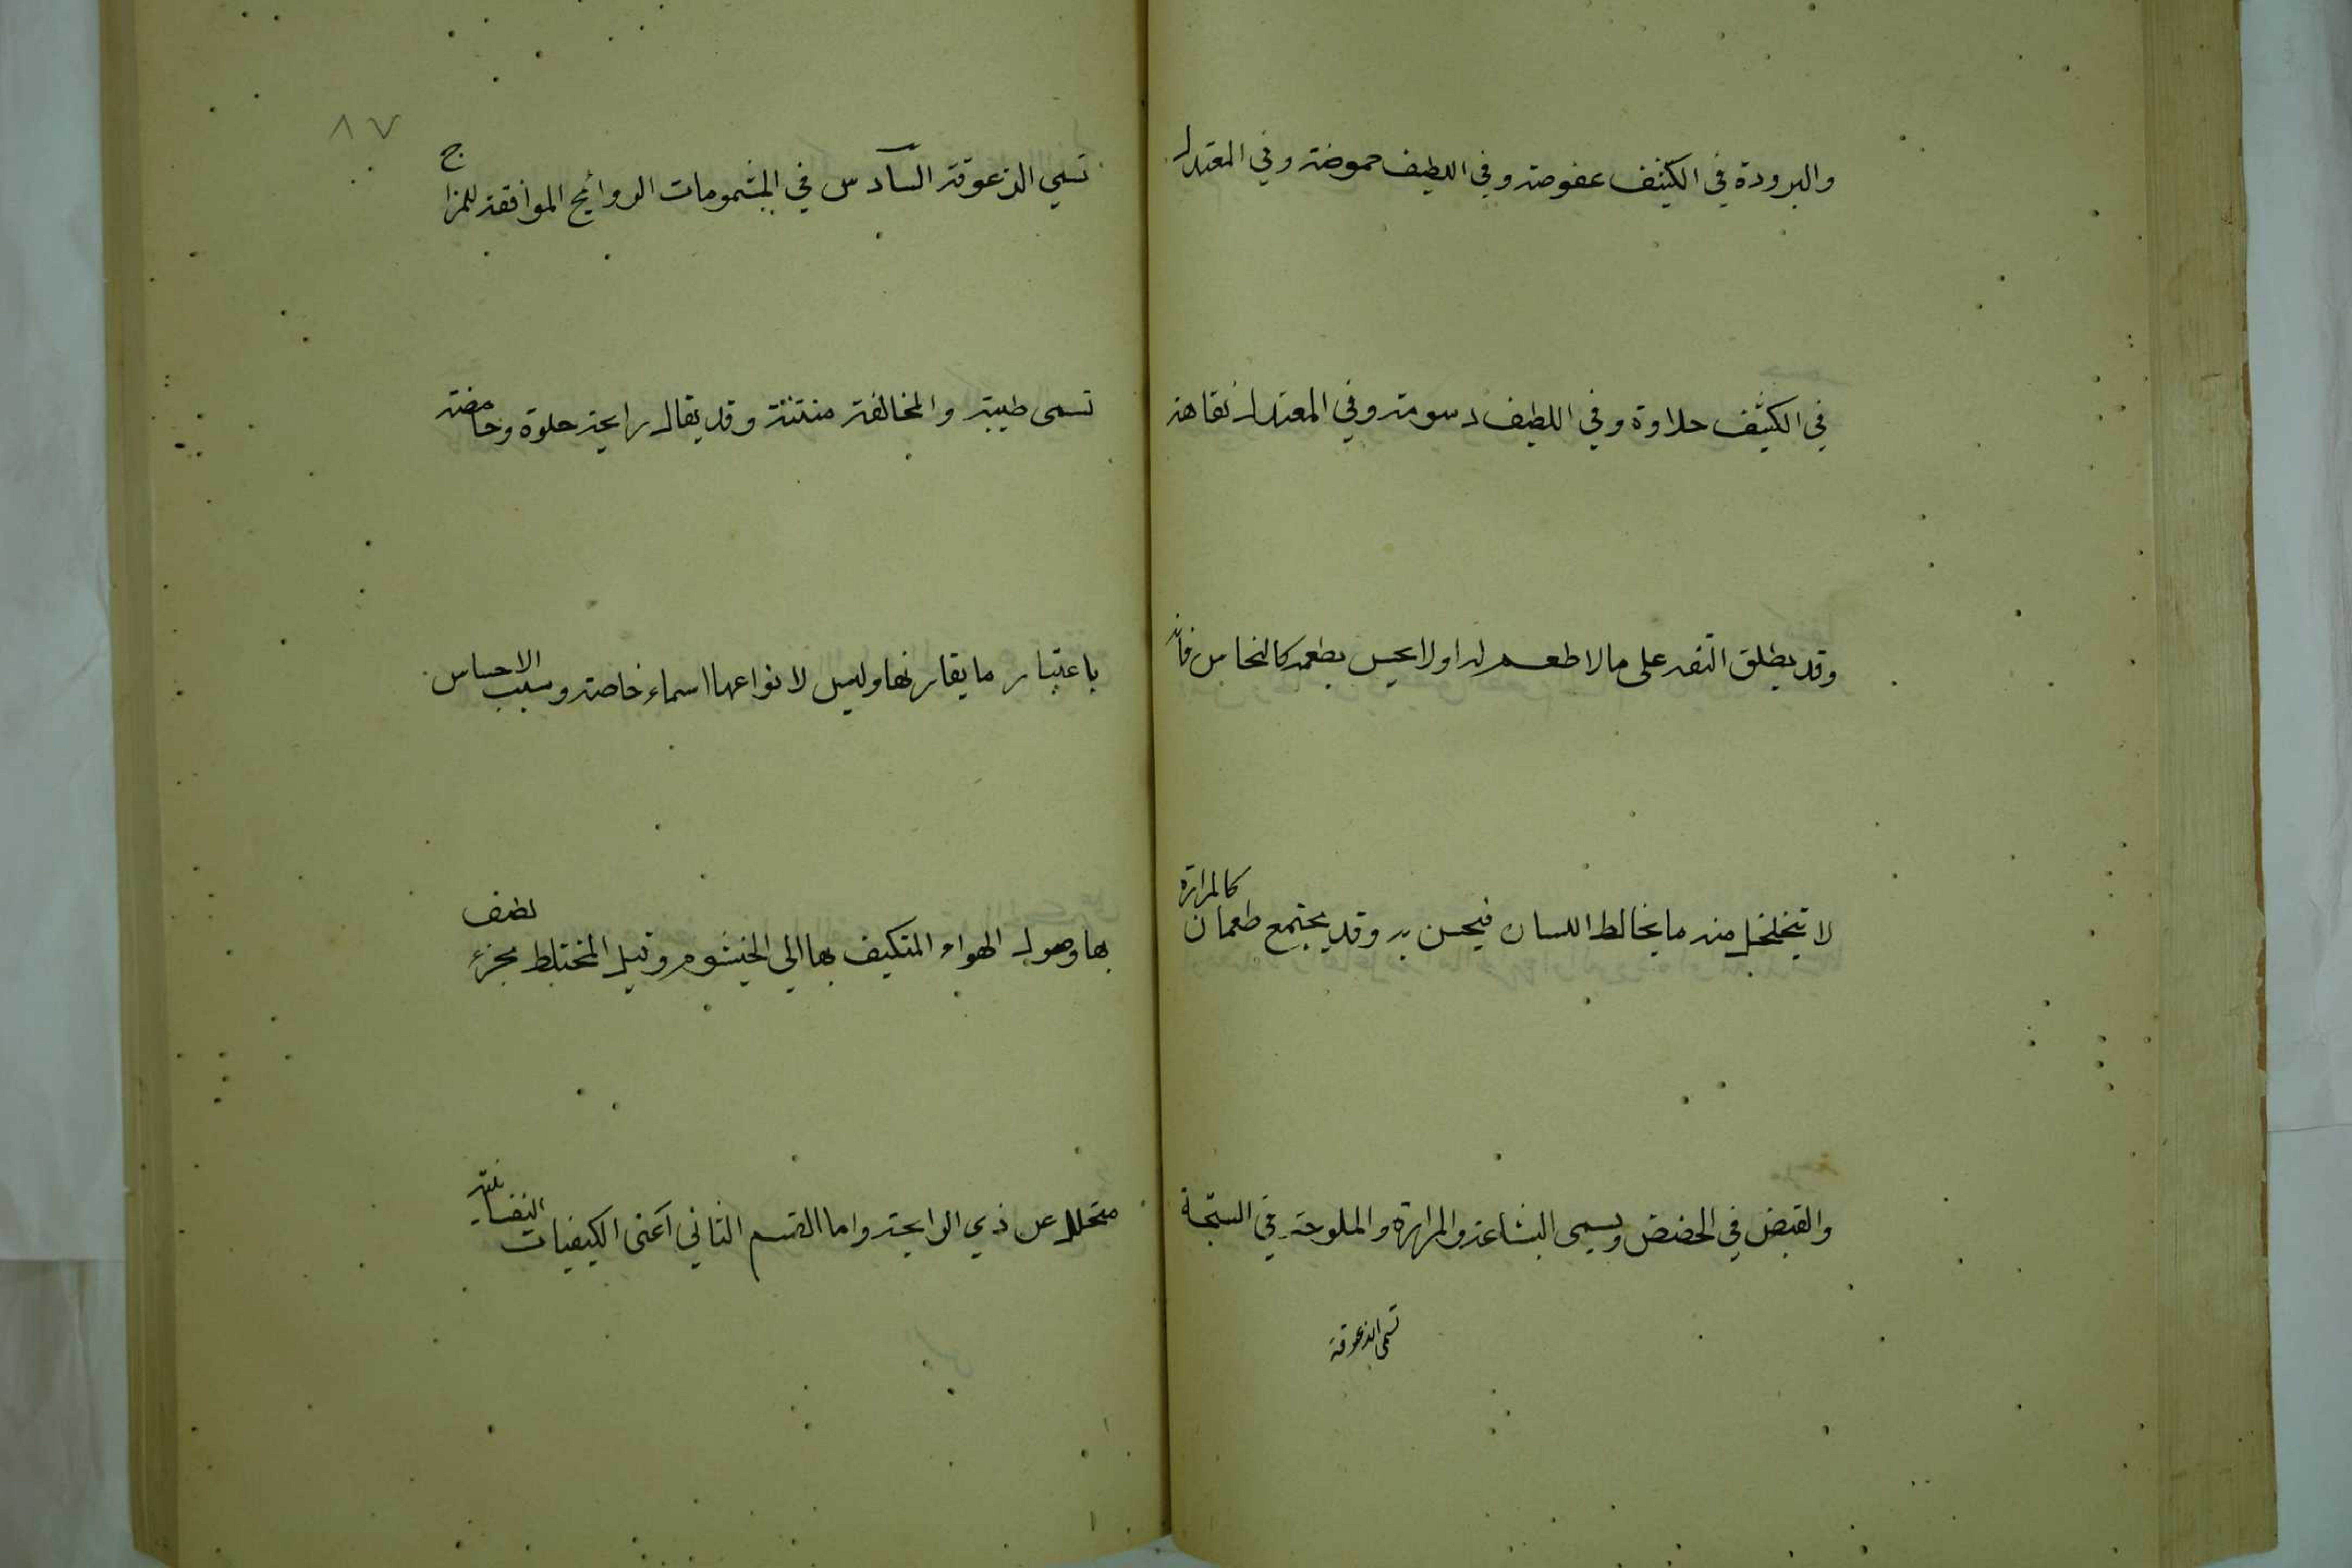 والبرودة في الكثيف عفوصة وفي اللطيف حموضة وفي المعتدل
في الكثيف حلاوة وفي اللطيف دسومة وفي المعتدل تفاهة
وقد يطلق التفه على ما لا طعم له او لا يحس بطعمه كالنحاس فانه
لا يتخلخل منه ما يخالط اللسان فيحس به وقد يجتمع طعمان كالمرارة
والقبض في الحضض ويسمى البشاعة والمرارة والملوحة في السبخة
تسمى الزعوقة
٨٧
تسمي الزعوقة السادس في المشمومات الروائح الموافقة للمزاج
تسمى طيبة والمخالفة منتنة وقد يقال رايحة حلوة وحامضة
باعتبار ما يقارنها وليس لانواعها اسماء خاصة وسبب الاحساس
بها وصول الهواء المتكيف بها الي الخيشوم وقيل المختلط بجزء لطيف
متحلل عن ذي الرايحة واما القسم الثاني اعنى الكيفيات النفسانية